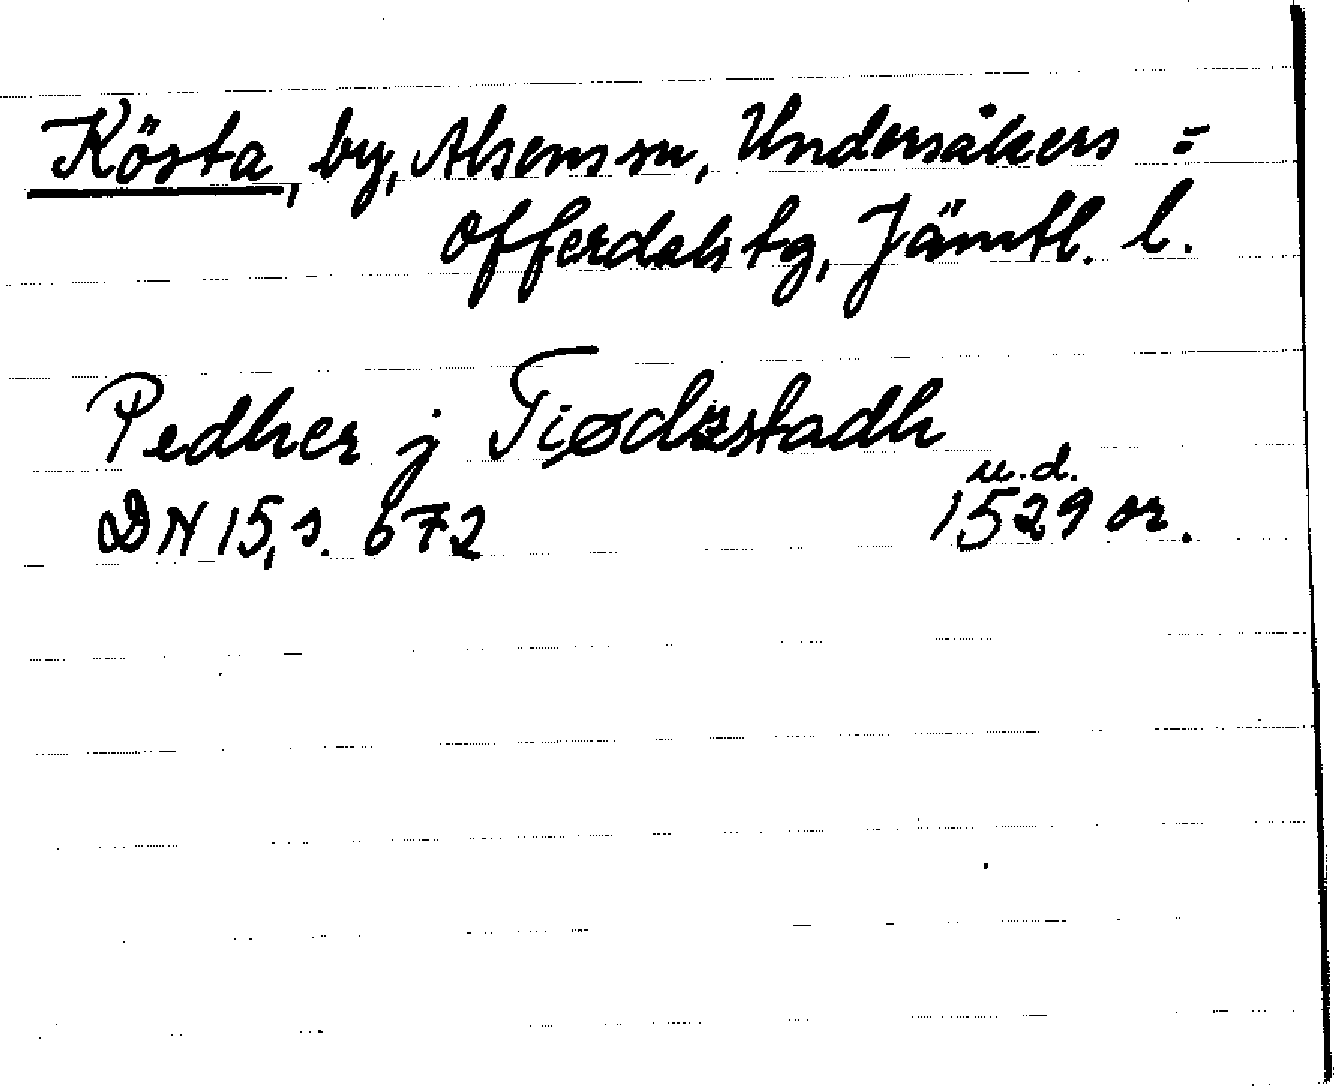 Kösta, by, Alsens sn, Undersåkers =
Offerdals tg, Jämtl. l.
Pedher j Tiødzstadh
u.d.
DN 15, s. 672 1529 or.